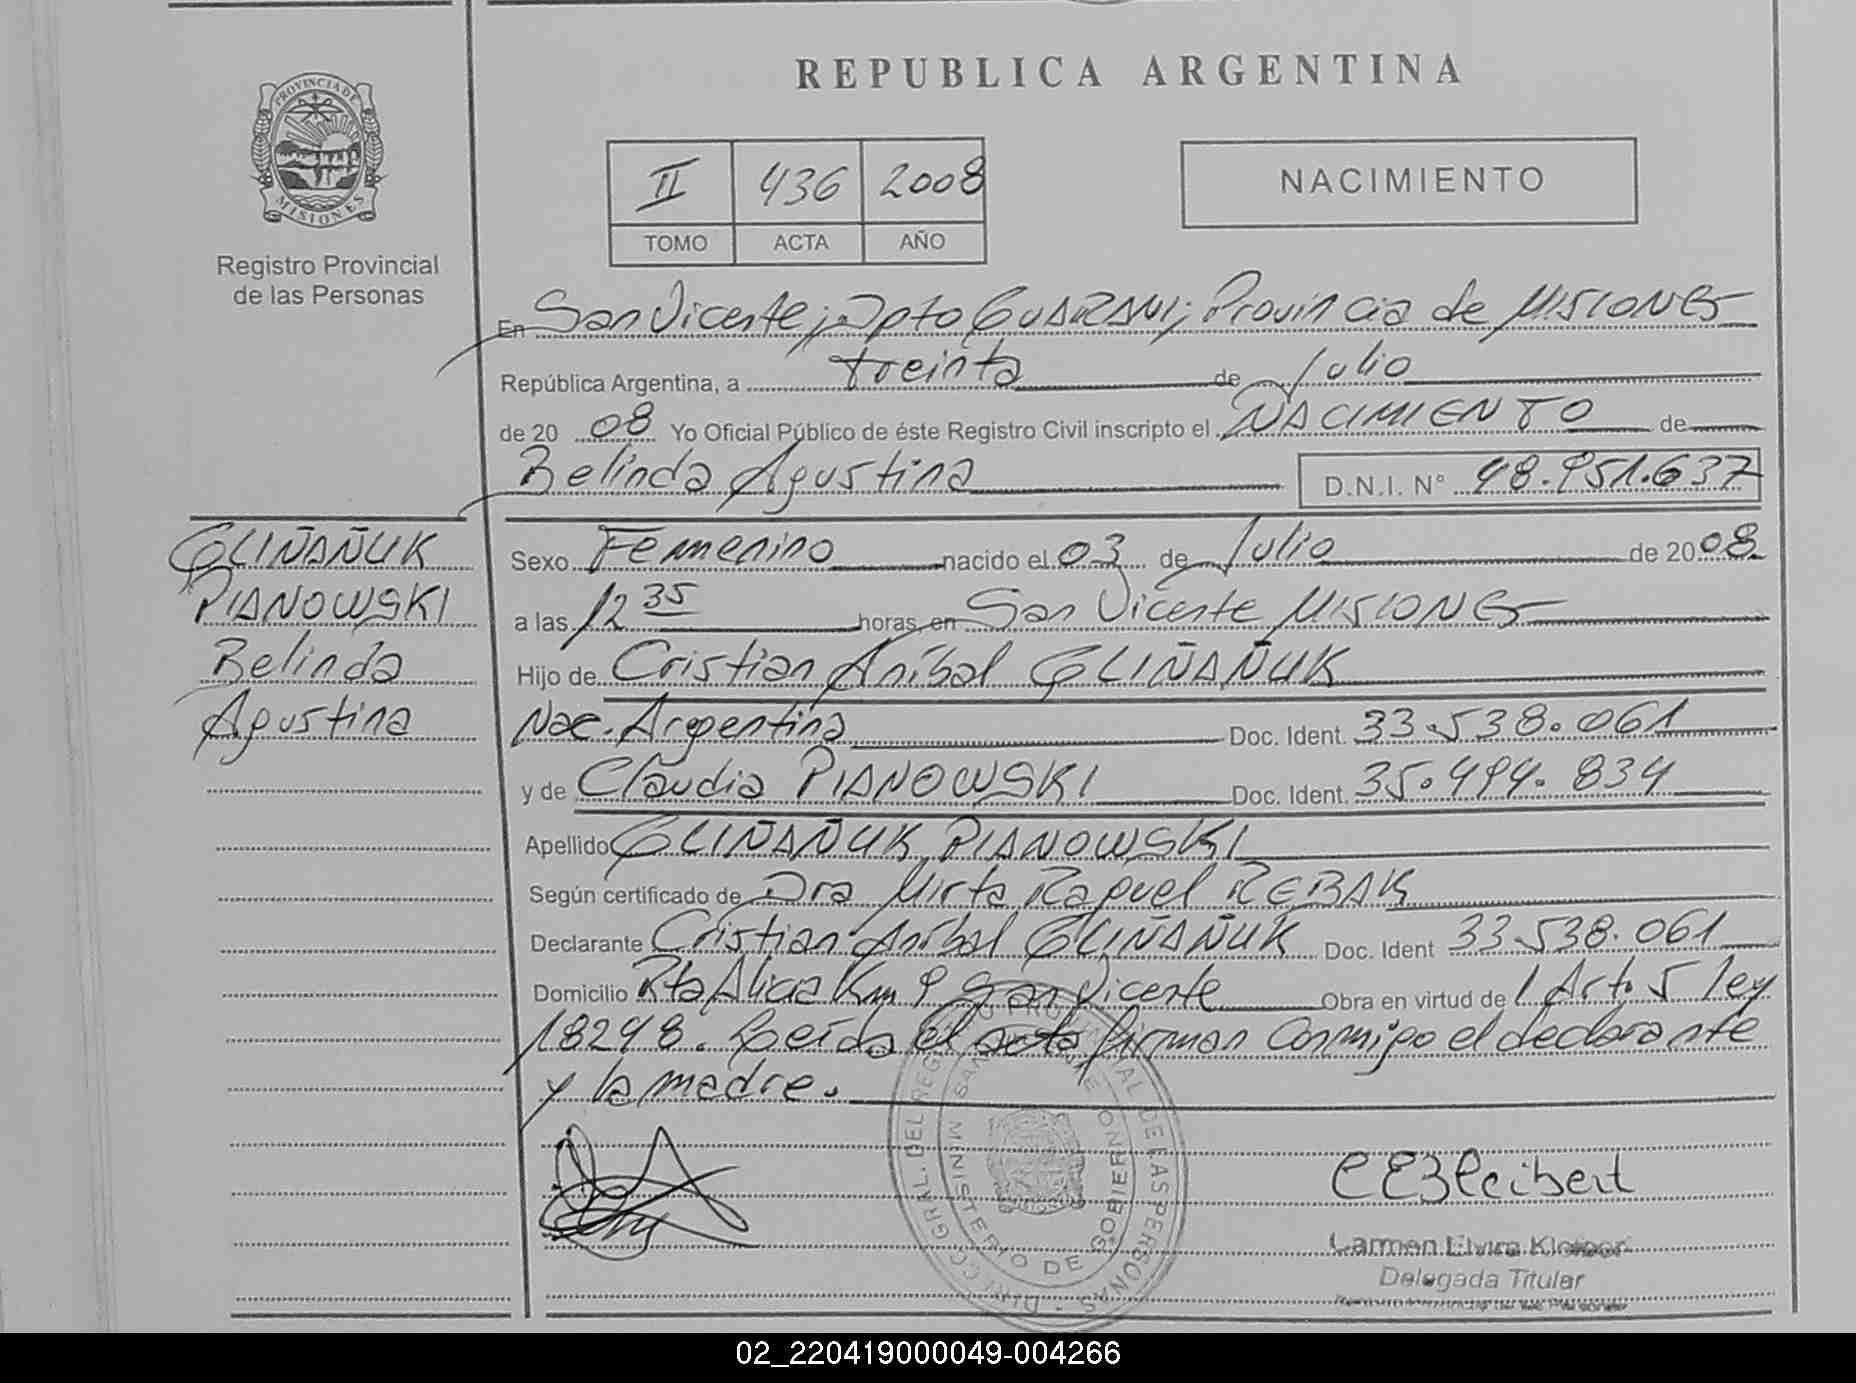 REPUBLICA ARGENTINA
PROVINCIA DE
MISIONES
Registro Provincial
de las Personas
II 436 2008
TOMO ACTA AÑO
NACIMIENTO
En San Vicente; Dpto GUARANI; Provincia de MISIONES
República Argentina, a treinta de Julio
de 2008 Yo Oficial Público de éste Registro Civil inscripto el NACIMIENTO de
Belinda Agustina D.N.I. N° 48.951.637
GLIÑAÑUK
PIANOWSKI
Belinda
Agustina
Sexo Femenino nacido el 03 de Julio de 2008.
a las 12 35 horas, en San Vicente MISIONES
Hijo de Cristian Aníbal GLIÑAÑUK
Nac. Argentina Doc. Ident. 33.538.061
y de Claudia PIANOWSKI Doc. Ident. 35.494.834
Apellido GLIÑAÑUK PIANOWSKI
Según certificado de Dra Mirta Raquel REBAK
Declarante Cristian Aníbal GLIÑAÑUK Doc. Ident 33.538.061
Domicilio Rta Alicia Km 9 San Vicente Obra en virtud de l Art. 5 ley
18248. Leída el acta firman conmigo el declarante
y la madre.
MINISTERIO DE GOBIERNO
CEBleibert
Carmen Elvira
Delegada Titular
02_220419000049-004266